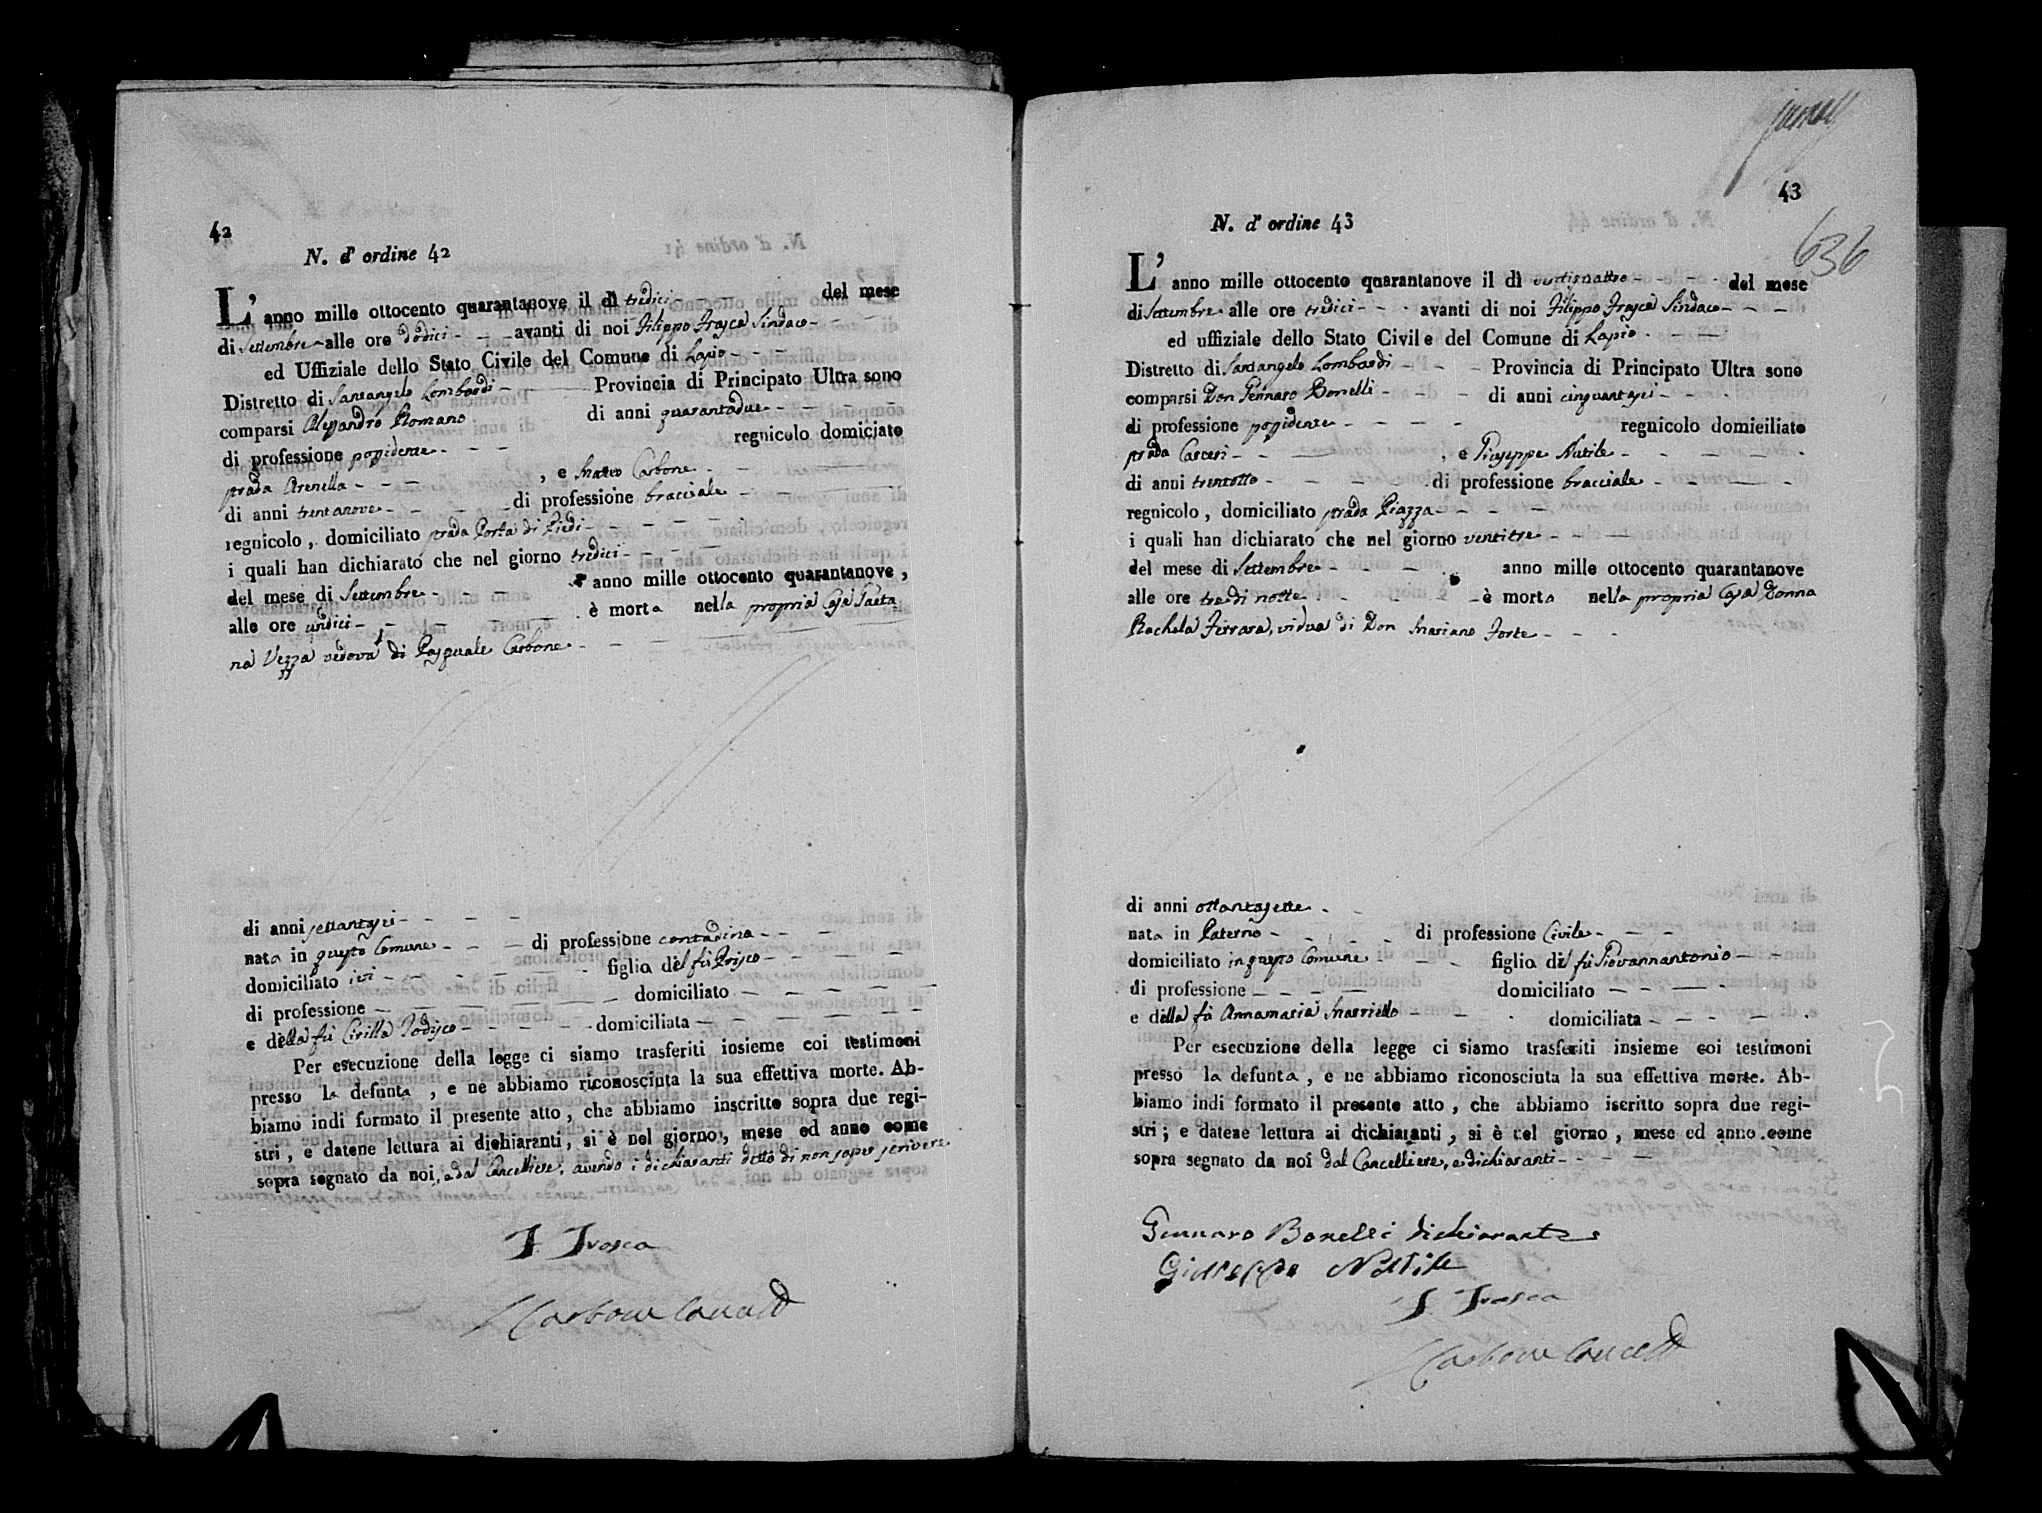 42
N. d' ordine 42
L' anno mille ottocento quarantanove il dì tredici del mese
di Settembre alle ore dodici avanti di noi Filippo Frasca Sindaco
ed Uffiziale dello Stato Civile del Comune di Lapio
Distretto di Santangelo Lombardi Provincia di Principato Ultra sono
comparsi Alessandro Romano di anni quarantadue
di professione possidente regnicolo domiciato
strada Arenella , e Matteo Carbone
di anni trentanove di professione bracciale
regnicolo, domiciliato strada Porta di Piedi
i quali han dichiarato che nel giorno tredici
del mese di Settembre anno mille ottocento quarantanove ,
alle ore undici è morta nella propria Casa Gaeta
na Vezza vedova di Pasquale Carbone
di anni settantasei
nata in questo Comune di professione contadina
domiciliato ivi figlia del fù Prisco
di professione domiciliato
e della fù Cirilla Todisco domiciliata
Per esecuzione della legge ci siamo trasferiti insieme coi testimoni
presso la defunta , e ne abbiamo riconosciuta la sua effettiva morte. Ab-
biamo indi formato il presente atto , che abbiamo inscritto sopra due regi-
stri , e datene lettura ai dichiaranti, si è nel giorno, mese ed anno come
sopra segnato da noi, e dal Cancelliere, avendo i dichiaranti detto di non saper scrivere
F Frasca
Carbone Cancell
43
636
N. d' ordine 43
L' anno mille ottocento quarantanove il dì ventiquattro del mese
di Settembre alle ore tredici avanti di noi Filippo Frasca Sindaco
ed uffiziale dello Stato Civile del Comune di Lapio
Distretto di Santangelo Lombardi Provincia di Principato Ultra sono
comparsi Don Gennaro Bonelli di anni cinquantasei
di professione possidente regnicolo domieiliato
strada Carceri , e Giuseppe Nutile
di anni trentotto di professione bracciale
regnicolo , domiciliato strada Piazza
i quali han dichiarato che nel giorno ventitre
del mese di Settembre anno mille ottocento quarantanove
alle ore tre di notte è morta nella propria Casa Donna
Rachela Ferrara, vidua di Don Mariano Forte
di anni ottantasette
nata in Paterno di professione Civile
domiciliato in questo Comune figlia del fù Giovannantonio
di professione domiciliato
e della fù Annamaria Marriello domiciliata
Per esecuzione della legge ci siamo trasferiti insieme coi testimoni
presso la defunta , e ne abbiamo riconosciuta la sua effettiva morte. Ab-
biamo indi formato il presente atto , che abbiamo iscritto sopra due regi-
stri ; e datene lettura ai dichiaranti , si è nel giorno , mese ed anno come
sopra segnato da noi dal Cancelliere, e dichiaranti
Gennaro Bonelli dichiarante
Giuseppe Nutile
F Frasca
Carbone Cancell